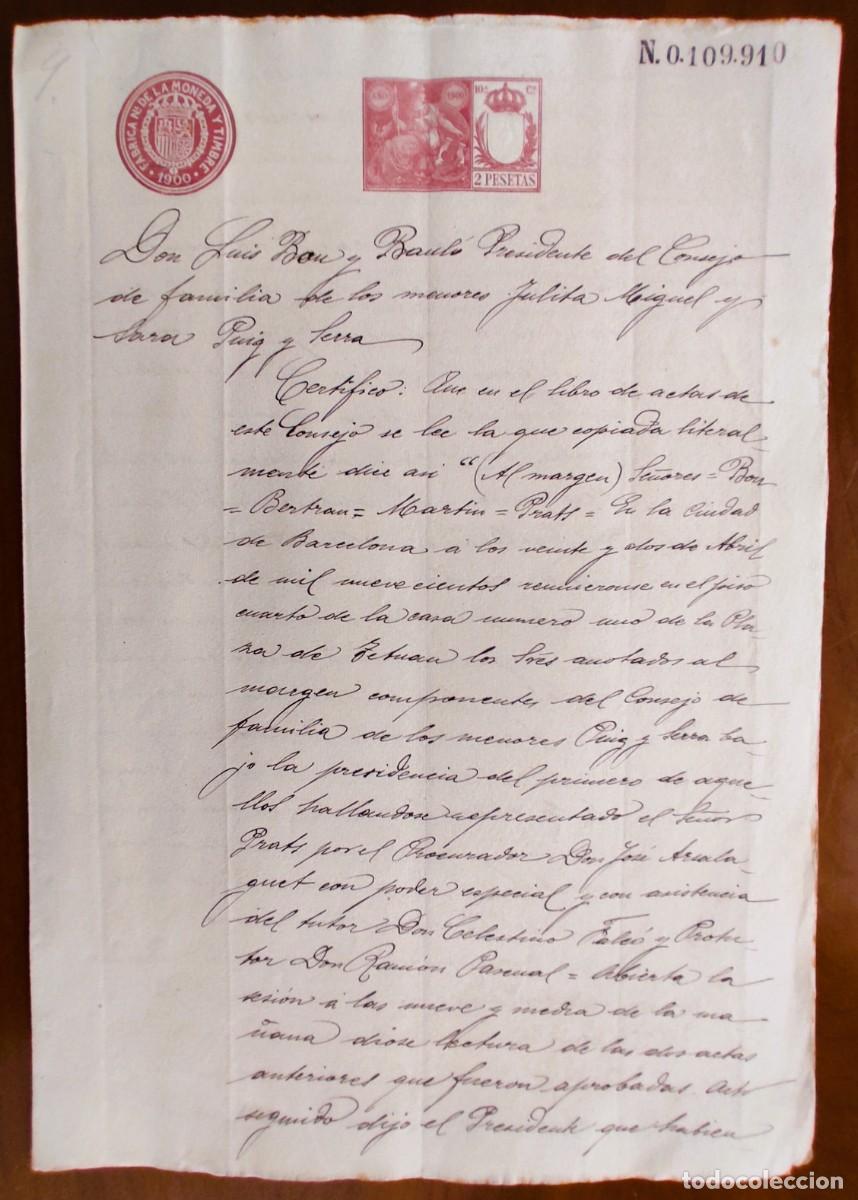 N. 0.109.910
FABRICA Nᴸ DE LA MONEDA Y TIMBRE
1900
1900
10ª Cª
2 PESETAS
Don Luis Bon y Pauló Presidente del Consejo
de familia de los menores Julita Miguel y
Sara Puig y Serra
Certifico: Que en el libro de actas de
este Consejo se lee la que copiada literal-
mente dice asi "(Al margen) Señores = Bon
= Bertran = Martin = Prats = En la Ciudad
de Barcelona á los veinte y dos de Abril
de mil nuevecientos reunieronse en el piso
cuarto de la casa numero uno de la Pla-
za de Tetuan los Sres anotados al
margen componentes del Consejo de
familia de los menores Puig y Serra ba-
jo la presidencia del primero de aque-
llos hallandose representado el Señor
Prats por el Procurador Don José
con poder especial y con asistencia
del tutor Don Celestino Falcó y Protu-
tor Don Ramón Pascual = Abierta la
sesión á las nueve y media de la ma
ñana diose lectura de las dos actas
anteriores que fueron aprobadas. Acto
seguido dijo el Presidente que habien
todocoleccion